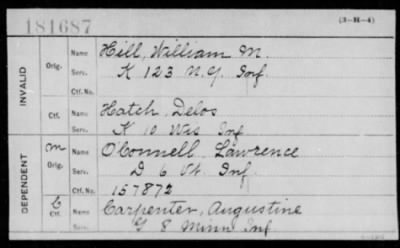 181687
(3-H-4)
INVALID
Orig.
Name Hill, William M.
Serv. K 123 N.Y. Inf
Ctf. No.
Ctf.
Name Hatch, Delos
Serv. K 10 Wis Inf
DEPENDENT
M
Orig.
Name O'Connell, Lawrence
Serv. D 6 Vt. Inf.
Ctf. No. 157872
C
Ctf.
Name Carpenter, Augustine
Serv. G 8 Minn Inf